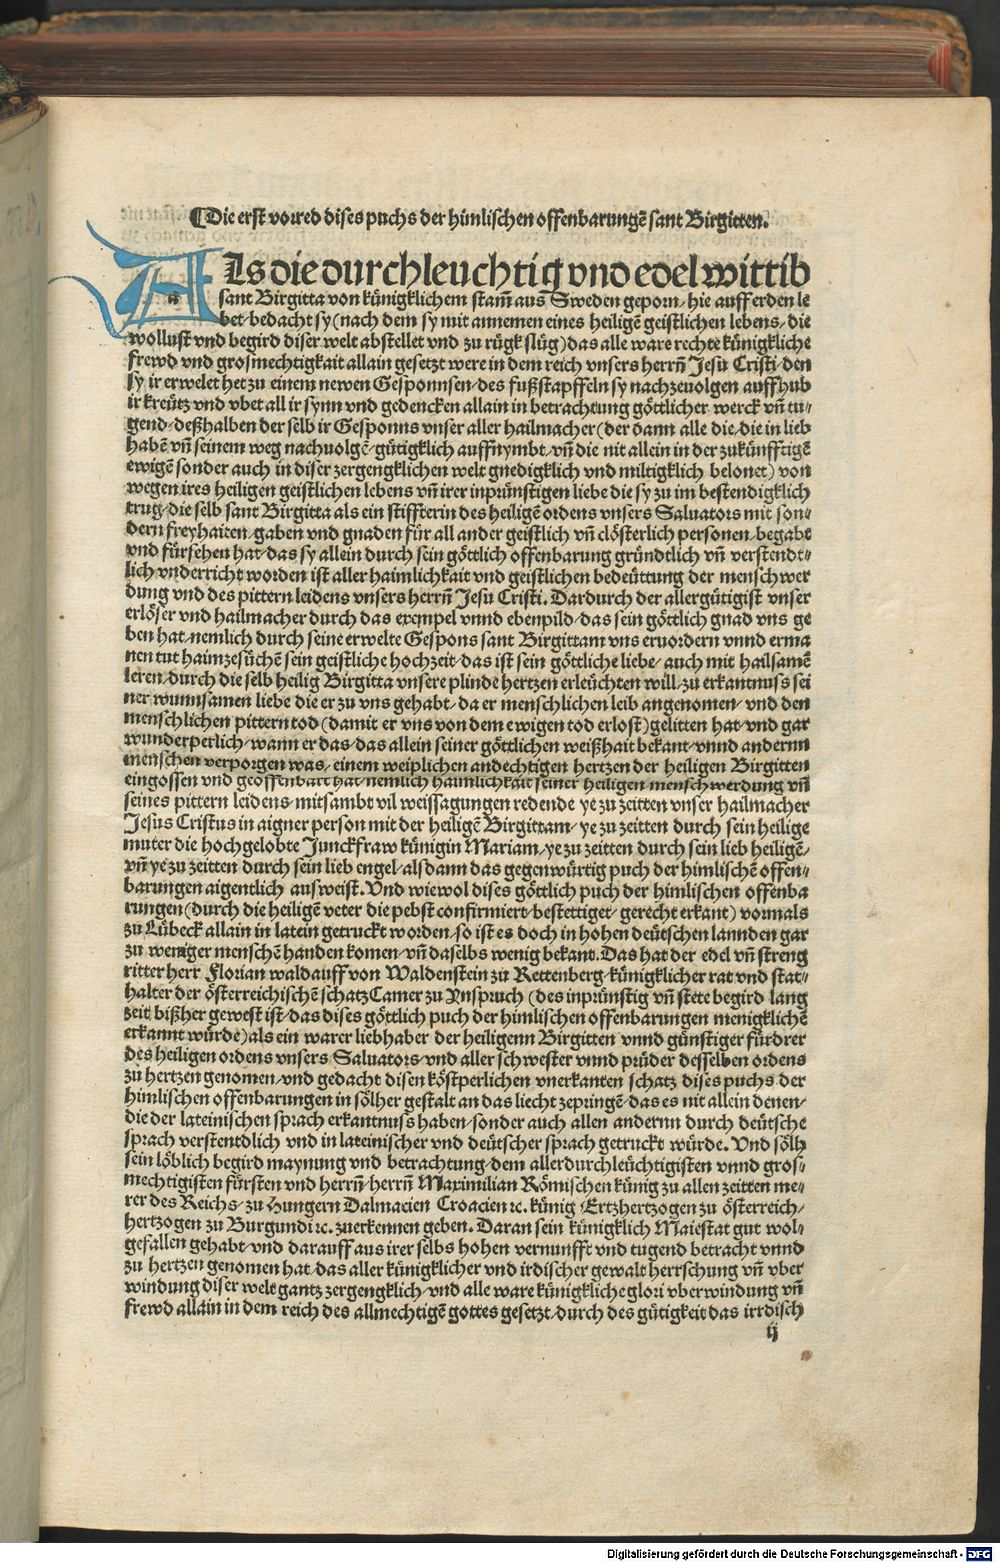 ¶Die erst vorred dises puchs der himlischen offenbarungē sant Birgitten.
Als die durchleuchtig vnd edel wittib
sant Birgitta von künigklichem stam̄ aus Sweden geporn/ hie auff erden le
bet/ bedacht sy (nach dem sy mit annemen eines heiligē geistlichen lebens/ die
wollust vnd begird diser welt abstellet vnd zu rügk slüg) das alle ware rechte künigkliche
frewd vnd grosmechtigkait allain gesetzt were in dem reich vnsers herrn̄ Jesu Cristi/ den
sy ir erwelet het zu einem newen Gesponnsen/ des fußstapffeln sy nachzeuolgen auffhub
ir kreütz vnd vbet all ir synn vnd gedencken allain in betrachtung göttlicher werck vn̄ tu⸗
gend/ deßhalben der selb ir Gesponns vnser aller hailmacher (der dann alle die/ die in lieb
habē vn̄ seinem weg nachuolgē/ gütigklich auffnymbt/ vn̄ die nit allein in der zukünfftigē
ewigē sonder auch in diser zergengklichen welt gnedigklich vnd miltigklich belonet) von
wegen ires heiligen geistlichen lebens vn̄ irer inprünstigen liebe die sy zu im bestendigklich
trug/ die selb sant Birgitta als ein stiffterin des heiligē ordens vnsers Saluators mit son⸗
dern freyhaiten/ gaben vnd gnaden für all ander geistlich vn̄ clösterlich personen/ begabt
vnd fürsehen hat/ das sy allein durch sein göttlich offenbarung gründtlich vn̄ verstendt⸗
lich vnderricht worden ist aller haimlichkait vnd geistlichen bedeüttung der menschwer
dung vnd des pittern leidens vnsers herrn̄ Jesu Cristi. Dardurch der allergütigist vnser
erlöser vnd hailmacher durch das exempel vnnd ebenpild/ das sein göttlich gnad vns ge
ben hat/ nemlich durch seine erwelte Gespons sant Birgittam vns eruordern vnnd erma
nen tut haimzesüchē sein geistliche hochzeit/ das ist sein göttliche liebe/ auch mit hailsamē
leren/ durch die selb heilig Birgitta vnsere plinde hertzen erleüchten will/ zu erkantnuss sei
ner wunnsamen liebe die er zu vns gehabt/ da er menschlichen leib angenomen/ vnd den
menschlichen pittern tod (damit er vns von dem ewigen tod erlost) gelitten hat/ vnd gar
wunderperlich/ wann er das/ das allein seiner göttlichen weißhait bekant/ vnnd andernn
menschen verporgen was/ einem weiplichen andechtigen hertzen der heiligen Birgitten
eingossen vnd geoffenbart hat/ nemlich haimlichkait seiner heiligen menschwerdung vn̄
seines pittern leidens/ mitsambt vil weissagungen redende ye zu zeitten vnser hailmacher
Jesus Cristus in aigner person mit der heiligē Birgittam/ ye zu zeitten durch sein heilige
muter die hochgelobte Junckfraw künigin Mariam/ ye zu zeitten durch sein lieb heiligē/
vn̄ ye zu zeitten durch sein lieb engel/ als dann das gegenwürtig puch der himlischē offen⸗
barungen aigentlich ausweist. Vnd wiewol dises göttlich puch der himlischen offenba
rungen (durch die heiligē veter die pebst confirmiert/ bestettiget/ gerecht erkant) vormals
zu Lübeck allain in latein getruckt worden/ so ist es doch in hohen deütschen lannden gar
zu weniger menschē handen komen/ vn̄ daselbs wenig bekant. Das hat der edel vn̄ streng
ritter herr Florian waldauff von Waldenstein zu Rettenberg/ künigklicher rat vnd stat⸗
halter der österreichischē schatz Camer zu Ynspruch (des inprünstig vn̄ stete begird lang
zeit bißher gewest ist/ das dises göttlich puch der himlischen offenbarungen menigklichē
erkannt würde) als ein warer liebhaber der heiligenn Birgitten vnnd günstiger fürdrer
des heiligen ordens vnsers Saluators/ vnd aller schwester vnnd prüder desselben ordens
zu hertzen genomen/ vnd gedacht disen köstperlichen vnerkanten schatz dises puchs der
himlischen offenbarungen in sölher gestalt an das liecht zepringē/ das es nit allein denen/
die der lateinischen sprach erkantnuss haben/ sonder auch allen andernn durch deütsche
sprach verstentdlich vnd in lateinischer vnd deütscher sprach getruckt würde. Vnd sölh
sein löblich begird maynung vnd betrachtung/ dem allerdurchleüchtigisten vnnd gros⸗
mechtigisten fürsten vnd herrn̄/ herrn̄ Maximilian Römischen künig zu allen zeitten me⸗
rer des Reichs/ zu Hungern Dalmacien Croacien ꝛc. künig/ Ertzhertzogen zu österreich/
hertzogen zu Burgundi ꝛc. zuerkennen geben. Daran sein künigklich Maiestat gut wol⸗
gefallen gehabt/ vnd darauff aus irer selbs hohen vernunfft vnd tugend betracht vnnd
zu hertzen genomen hat/ das aller künigklicher vnd irdischer gewalt herrschung vn̄ vber
windung diser welt gantz zergengklich/ vnd alle ware künigkliche glori vberwindung vn̄
frewd allain in dem reich des allmechtigē gottes gesetzt/ durch des gütigkeit das irrdisch
ij
Digitalisierung gefördert durch die Deutsche Forschungsgemeinschaft - DFG